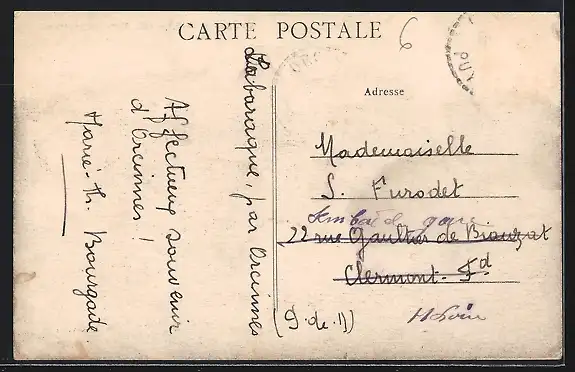 CARTE POSTALE
6
PUY
Adresse
Labaraque, par Orcines
(P.-de-D)
Affectueux souvenir
d'Orcines !
Marie-Th. Bourgade
Mademoiselle
S. Furodet
gare
22 rue Gaultier de Biauzat
Clermont-Fd
H Loire